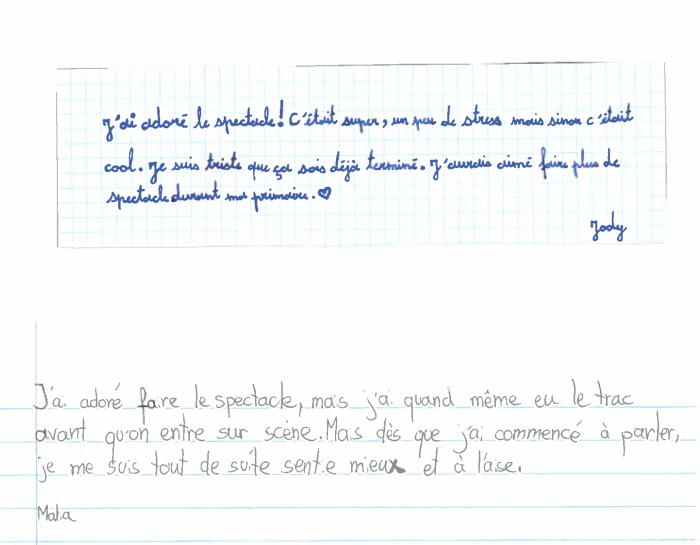 J'ai adoré le spectacle! C'était super, un peu de stress mais sinon c'était
cool. Je suis triste que ça sois déjà terminé. J'aurais aimé faire plus de
spectacle durant ma primaire. ♡
Jody
J'ai adoré faire le spectacle, mais j'ai quand même eu le trac
avant qu'on entre sur scène. Mais dès que j'ai commencé à parler,
je me suis tout de suite sentie mieux et à l'aise.
Malia